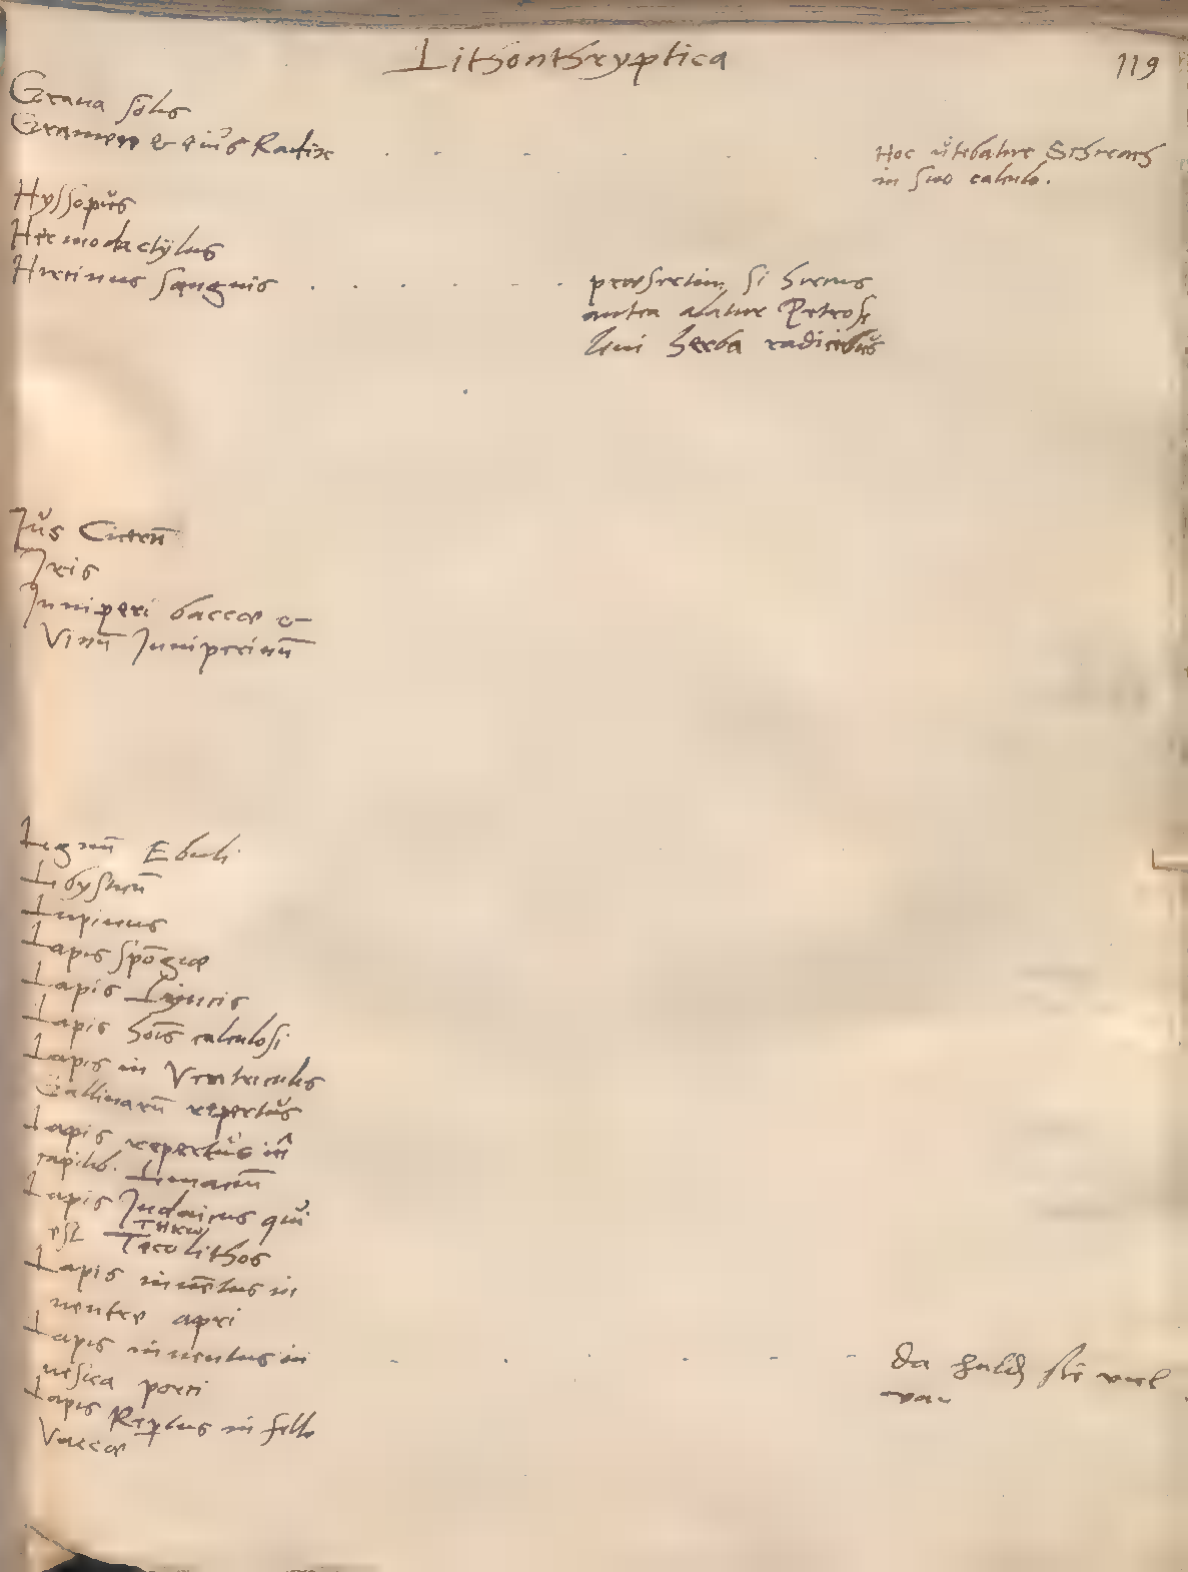 Lithonthryptica 119
Grana solis
Gramen & eiŭs Radix . . . . . . Hoc ŭtebatur
in suo calculo.
Hyssopŭs
Hermodactÿlus
Hircinus sanguis . . . . . . praesertim si hircus
antea alatur Petrose
lini herba radicibŭs
Jŭs Cicerū
Iris
Juniperi baccae &
Vinū Juniperinū
Lignū Ebuli
Libysticū
Lupinus
Lapis spōgiae
Lapis Lyncis
Lapis hoīs calculosi
Lapis in Ventriculis
Gallinarū repertŭs
Lapis repertŭs in
capitib. Limacū
Lapis Judaicus qui
est Tecolithos
THKω
Lapis inuētus in
uentre apri
Lapis inuentus in . . . . . . da hald sie viel
uesica porci von
Lapis Reptus in felle
Vaccae